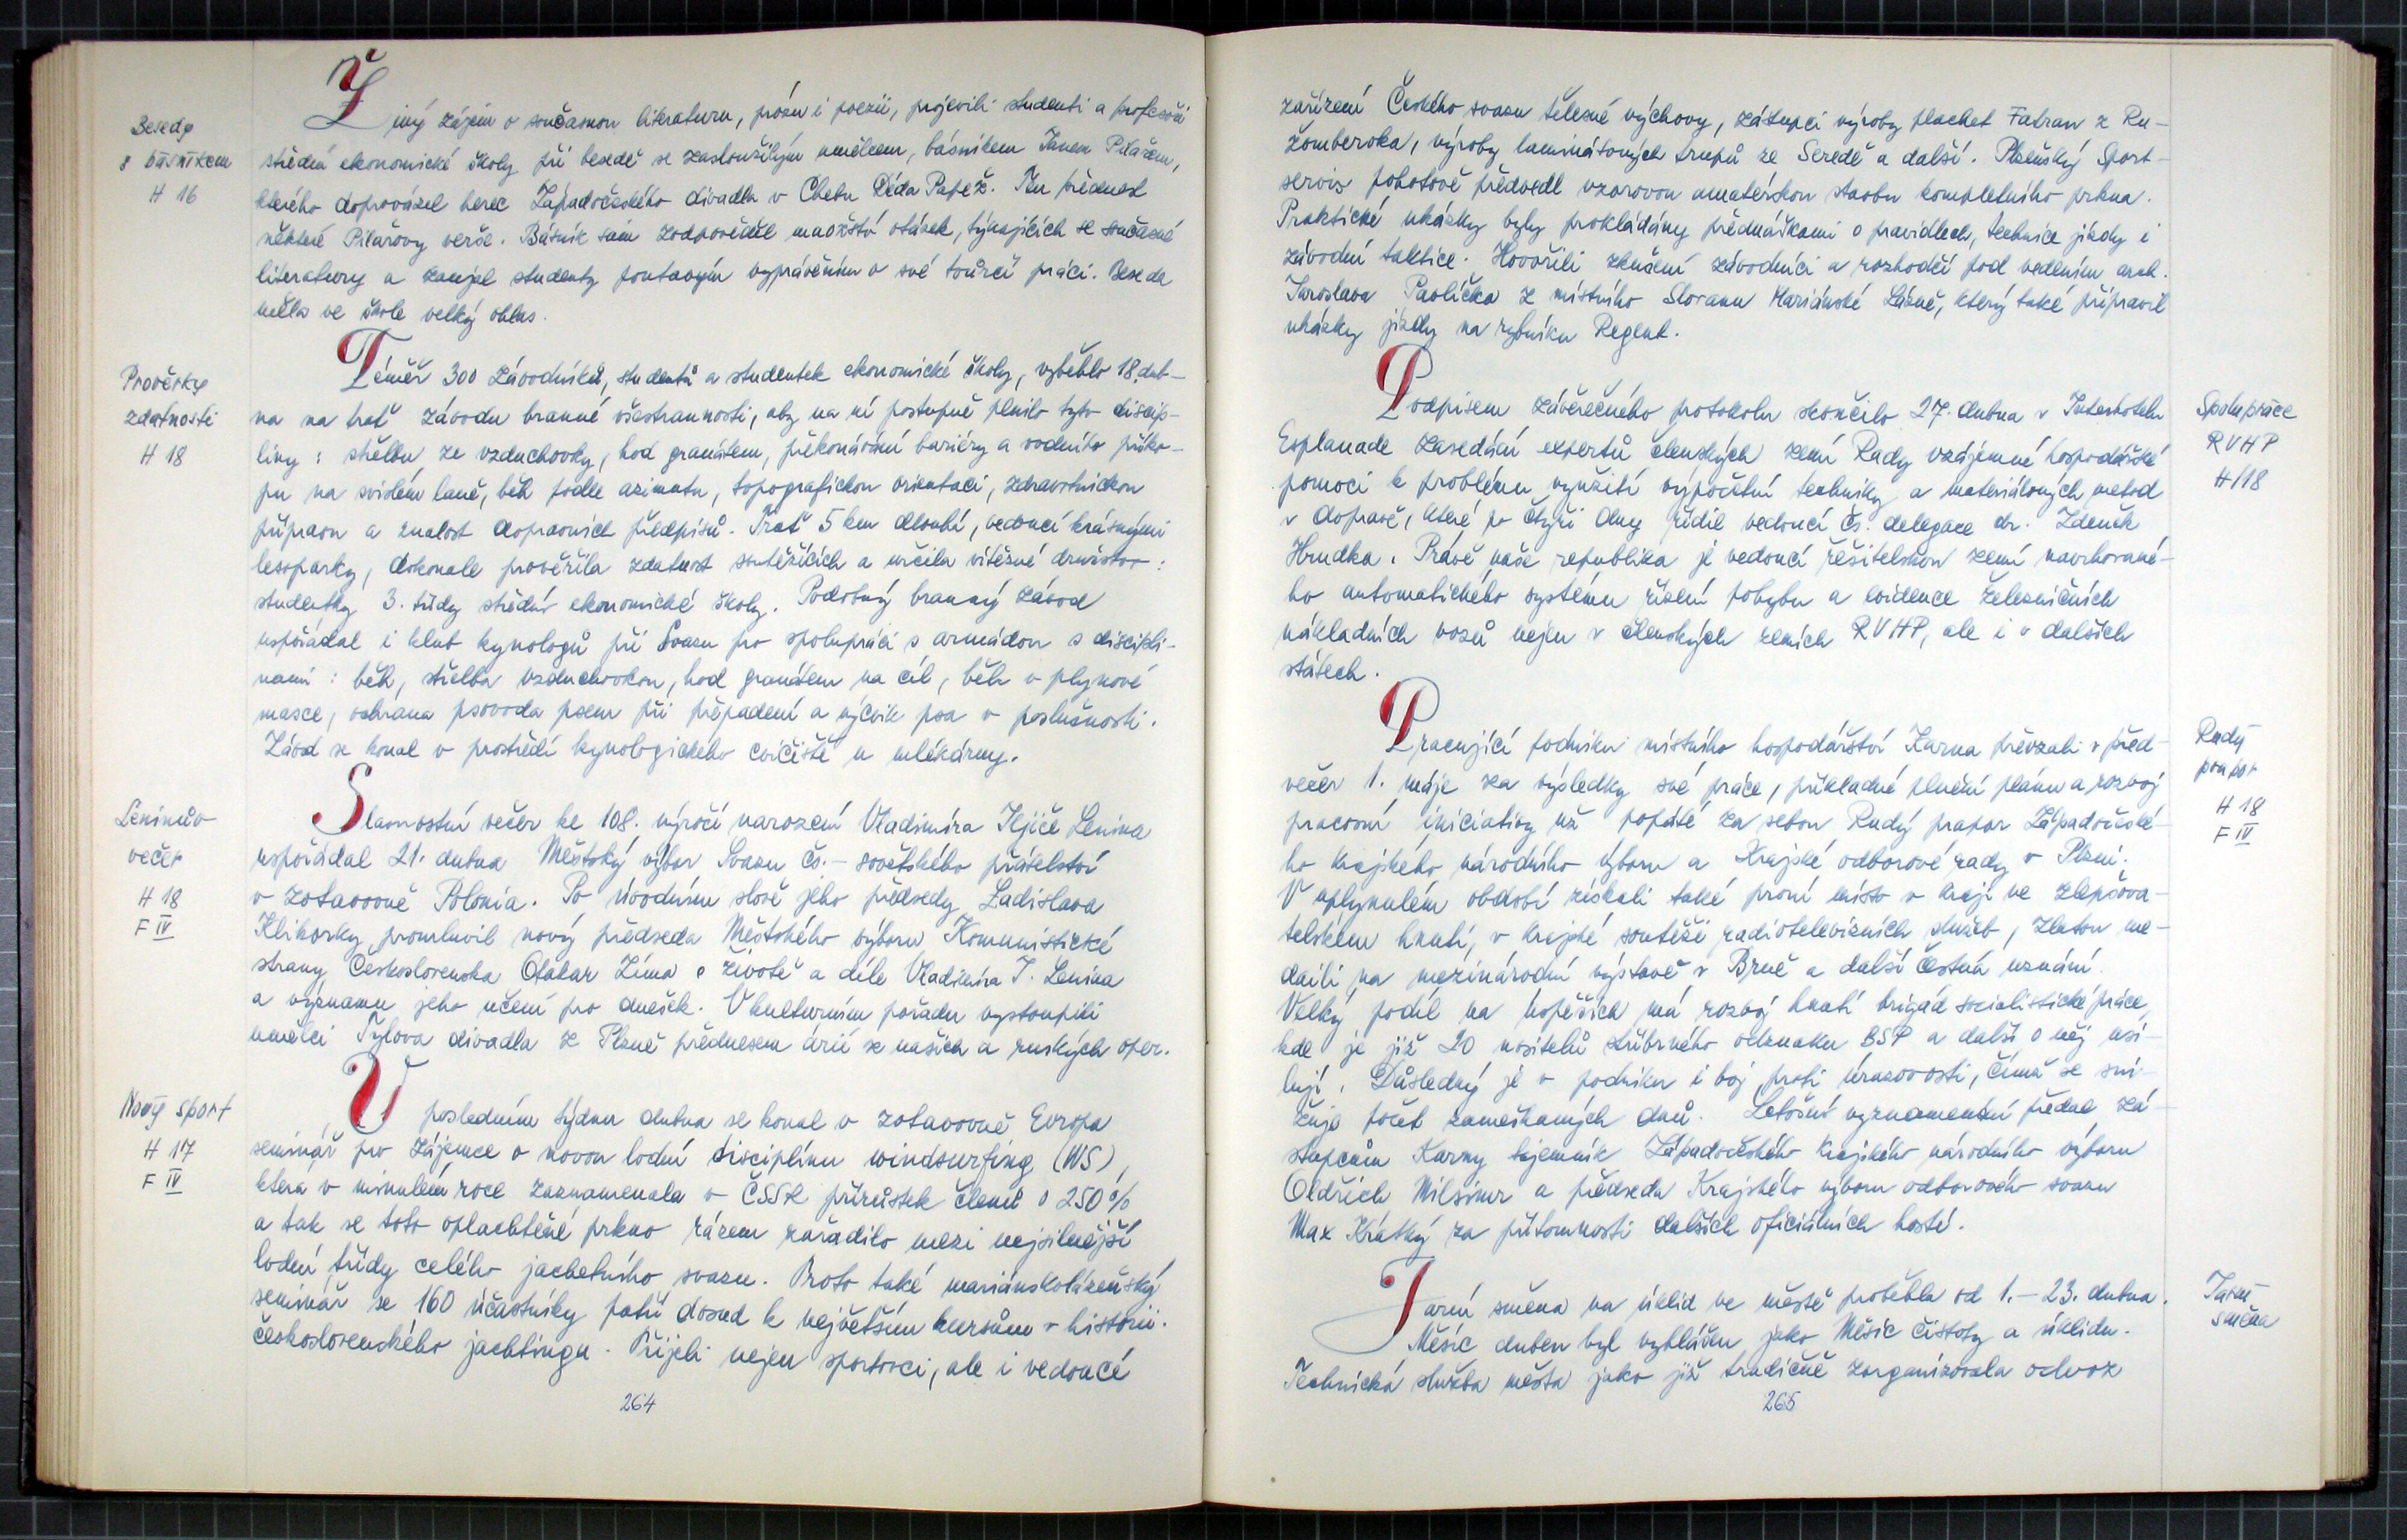 Beseda
s básníkem
H 16
Živý zájem o současnou literaturu, prózu i poezii, projevili studenti a profesoři
střední ekonomické školy při besedě se zasloužilým umělcem, básníkem Janem Pilařem,
kterého doprovázel herec Západočeského divadla v Chebu Déda Papež. Ten přednesl
některé Pilařovy verše. Básník sám zodpověděl množství otázek, týkajících se současné
literatury a zaujal studenty poutavým vyprávěním o své tvůrčí práci. Beseda
měla ve škole velký ohlas.
Prověrky
zdatnosti
H 18
Téměř 300 závodníků, studentů a studentek ekonomické školy, vyběhlo 18. dub-
na na trať závodu branné všestrannosti, aby na ní postupně plnilo tyto discip-
líny: střelbu ze vzduchovky, hod granátem, překonávání bariéry a vodního příko-
pu na svislém laně, běh podle azimutu, topografickou orientaci, zdravotnickou
přípravu a znalost dopravních předpisů. Trať 5 km dlouhá, vedoucí krásnými
lesoparky, dokonale prověřila zdatnost soutěžících a určila vítězné družstvo:
studentky 3. třídy střední ekonomické školy. Podobný branný závod
uspořádal i klub kynologů při Svazu pro spolupráci s armádou s disciplí-
nami: běh, střelba vzduchovkou, hod granátem na cíl, běh v plynové
masce, ochrana psovoda psem při přepadení a výcvik psa v poslušnosti.
Závod se konal v prostředí kynologického cvičiště u mlékárny.
Leninův
večer
H 18
F IV
Slavnostní večer ke 108. výročí narození Vladimíra Iljiče Lenina
uspořádal 21. dubna Městský výbor Svazu čs.-sovětského přátelství
v zotavovně Polonia. Po úvodním slově jeho předsedy Ladislava
Klikorky promluvil nový předseda Městského výboru Komunistické
strany Československa Otakar Zíma o životě a díle Vladimíra I. Lenina
a významu jeho učení pro dnešek. V kulturním pořadu vystoupili
umělci Tylova divadla z Plzně přednesem árií ze našich a ruských oper.
Nový sport
H 17
F IV
V posledním týdnu dubna se konal v zotavovně Evropa
seminář pro zájemce o novou lodní disciplínu windsurfing (WS),
která v minulém roce zaznamenala v ČSSR přírůstek členů o 250%
a tak se toto oplachtěné prkno rázem zařadilo mezi nejsilnější
lodní třídy celého jachetního svazu. Proto také mariánskolázeňský
seminář se 160 účastníky patří dosud k největším kursům v historii
československého jachtingu. Přijeli nejen sportovci, ale i vedoucí
264
zařízení Českého svazu tělesné výchovy, zástupci výroby plachet Fatran z Ru-
žomberoka, výroby laminátových trupů ze Seredě a další. Plzeňský Sport-
servis pohotově předvedl vzorovou amatérskou stavbu kompletního prkna.
Praktické ukázky byly prokládány přednáškami o pravidlech, technice jízdy i
závodní taktice. Hovořili zkušení závodníci a rozhodčí pod vedením arch.
Jaroslava Pavlíčka z místního Slovanu Mariánské Lázně, který také připravil
ukázky jízdy na rybníku Regent.
Spolupráce
RVHP
H/18
Podpisem závěrečného protokolu skončilo 27. dubna v Interhotelu
Esplanade zasedání expertů členských zemí Rady vzájemné hospodářské
pomoci k problému využití výpočetní techniky a materiálových metod
v dopravě, které po čtyři dny řídil vedoucí čs. delegace dr. Zdeněk
Hrudka. Právě naše republika je vedoucí řešitelskou zemí navrhované-
ho automatického systému řízení pohybu a evidence železničních
nákladních vozů nejen v členských zemích RVHP, ale i v dalších
státech.
Rudý
prapor
H 18
F IV
Pracující podniku místního hospodářství Karna převzali v před-
večer 1. máje za výsledky své práce, příkladné plnění plánu a rozvoj
pracovní iniciativy už popáté za sebou Rudý prapor Západočeské-
ho krajského národního výboru a Krajské odborové rady v Plzni.
V uplynulém období získali také první místo v kraji ve zlepšova-
telském hnutí, v krajské soutěži radiotelevizních služeb, zlatou me-
daili na mezinárodní výstavě v Brně a další čestná uznání.
Velký podíl na úspěších má rozvoj hnutí brigád socialistické práce,
kde je již 20 nositelů stříbrného odznaku BSP a další o něj usi-
lují. Důsledný je v podniku i boj proti úrazovosti, čímž se sni-
žuje počet zameškaných dnů. Letošní vyznamenání předal zá-
stupcům Karny tajemník Západočeského krajského národního výboru
Oldřich Milsimr a předseda Krajského výboru odborového svazu
Max Krátký za přítomnosti dalších oficiálních hostí.
Jarní
směna
Jarní směna na úklid ve městě proběhla od 1.-23. dubna.
Měsíc duben byl vyhlášen jako Měsíc čistoty a úklidu.
Technická služba města jako již tradičně zorganizovala odvoz
265